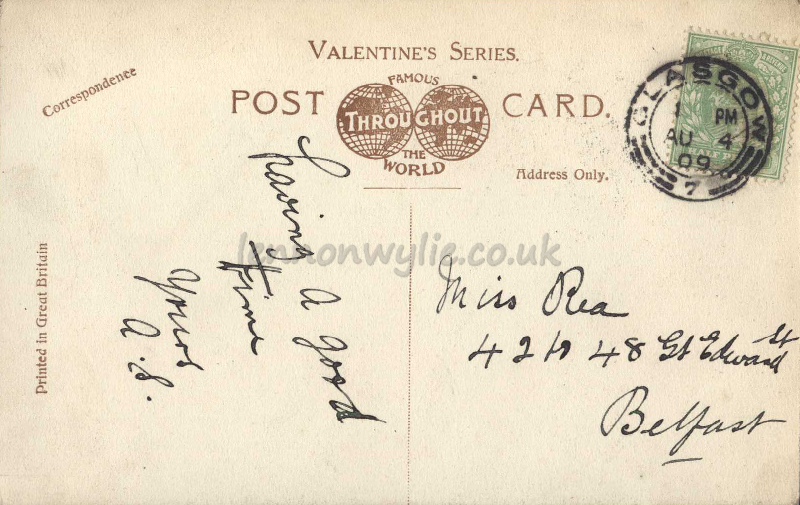 VALENTINE'S SERIES.
Correspondence
POST CARD.
FAMOUS
THROUGHOUT
THE
WORLD
Address Only.
Printed in Great Britain
GLASGOW
1 PM
AU 4
09
7
having a good
time
Yours
A.S.
Miss Rea
42 to 48 Gt Edward St
Belfast
lennonwylie.co.uk